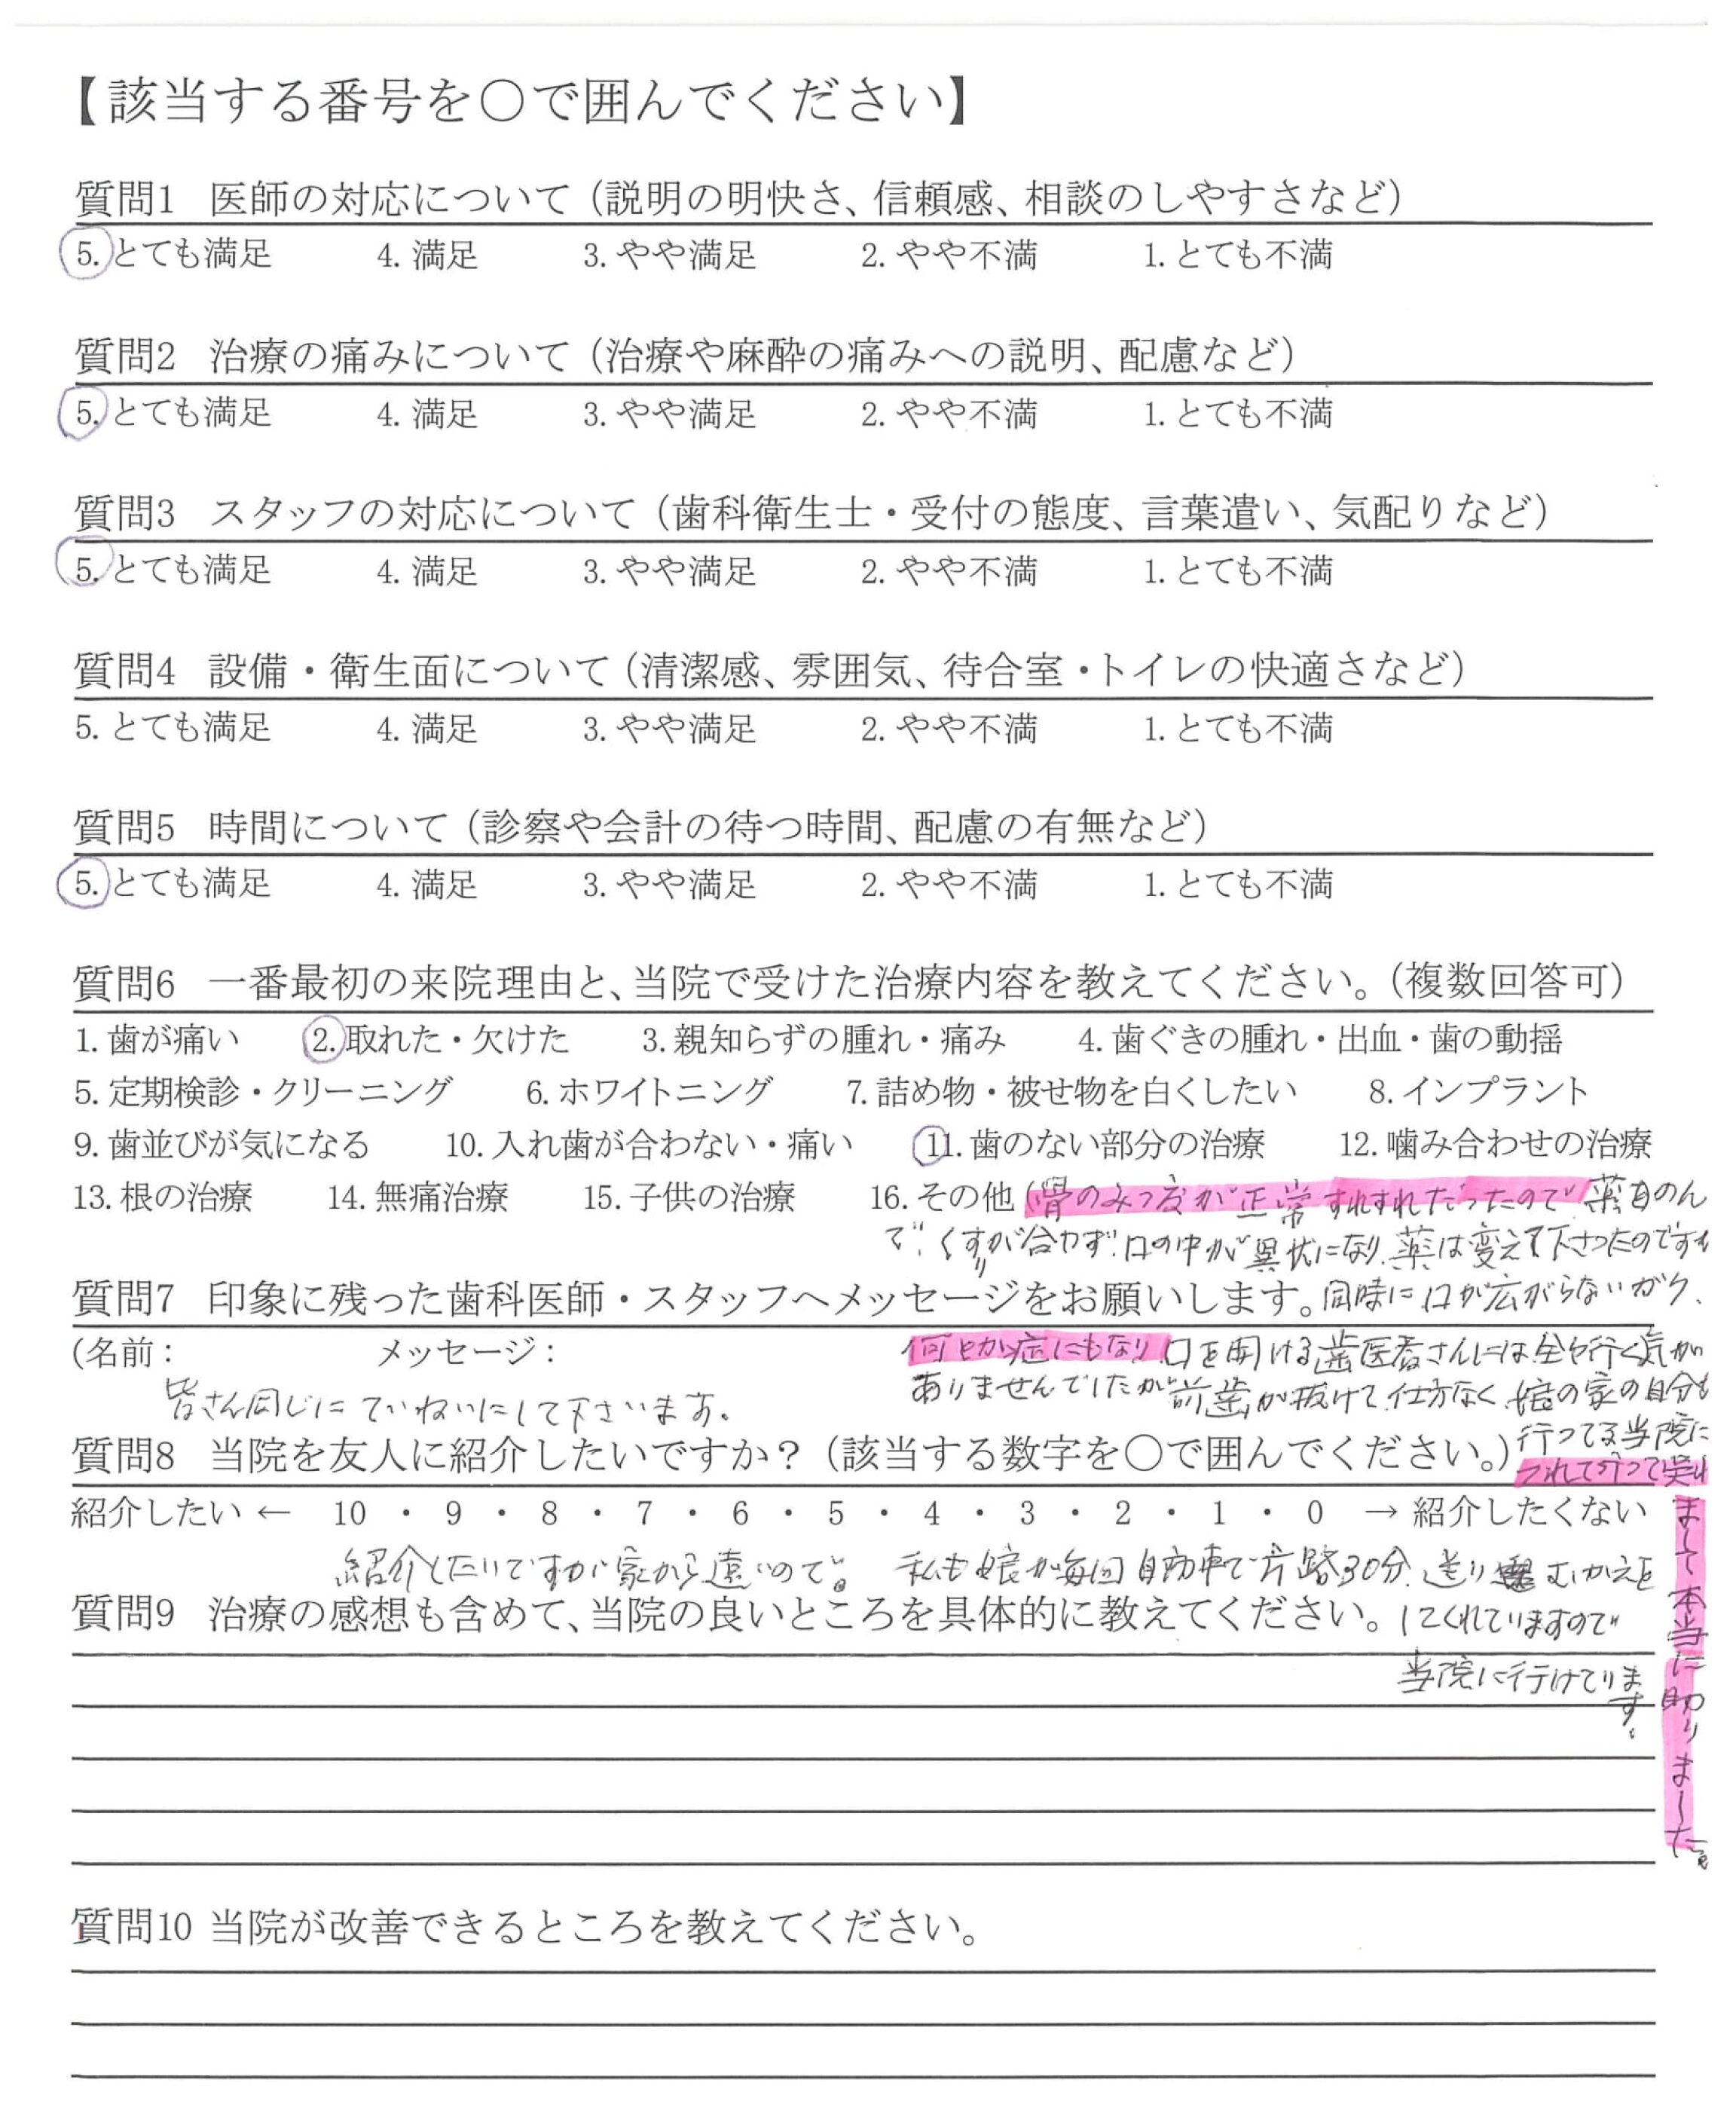 【該当する番号を〇で囲んでください】
質問1 医師の対応について（説明の明快さ、信頼感、相談のしやすさなど）
5. とても満足 4. 満足 3. やや満足 2. やや不満 1. とても不満
質問2 治療の痛みについて（治療や麻酔の痛みへの説明、配慮など）
5. とても満足 4. 満足 3. やや満足 2. やや不満 1. とても不満
質問3 スタッフの対応について（歯科衛生士・受付の態度、言葉遣い、気配りなど）
5. とても満足 4. 満足 3. やや満足 2. やや不満 1. とても不満
質問4 設備・衛生面について（清潔感、雰囲気、待合室・トイレの快適さなど）
5. とても満足 4. 満足 3. やや満足 2. やや不満 1. とても不満
質問5 時間について（診察や会計の待つ時間、配慮の有無など）
5. とても満足 4. 満足 3. やや満足 2. やや不満 1. とても不満
質問6 一番最初の来院理由と、当院で受けた治療内容を教えてください。（複数回答可）
1. 歯が痛い 2. 取れた・欠けた 3. 親知らずの腫れ・痛み 4. 歯ぐきの腫れ・出血・歯の動揺
5. 定期検診・クリーニング 6. ホワイトニング 7. 詰め物・被せ物を白くしたい 8. インプラント
9. 歯並びが気になる 10. 入れ歯が合わない・痛い 11. 歯のない部分の治療 12. 噛み合わせの治療
13. 根の治療 14. 無痛治療 15. 子供の治療 16. その他（骨のみつ度が正常すれすれだったので薬をのん
で、くすりが合わず口の中が異状になり、薬は変えて下さったのですが
同時に口が広がらないガク、
何とか症にもなり口を開ける歯医者さんには全々行く気が
ありませんでしたが前歯が抜けて仕方なく、娘の家の自分も
行ってる当院に
つれて行って呉れ
まして本当に助りました。
質問7 印象に残った歯科医師・スタッフへメッセージをお願いします。
（名前： メッセージ：
皆さん同じにていねいにして下さいます。
質問8 当院を友人に紹介したいですか？（該当する数字を〇で囲んでください。）
紹介したい ← 10 ・ 9 ・ 8 ・ 7 ・ 6 ・ 5 ・ 4 ・ 3 ・ 2 ・ 1 ・ 0 → 紹介したくない
紹介したいですが家から遠いので。 私も娘が毎回自動車で片路30分、送りむかえを
してくれていますので
当院に行けてります。
質問9 治療の感想も含めて、当院の良いところを具体的に教えてください。
質問10 当院が改善できるところを教えてください。